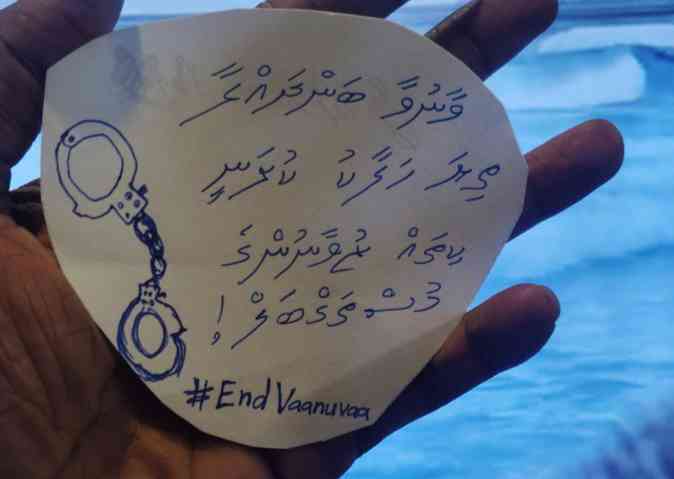 ވާނުވާ ބަންދަށްލާ
ތިޔަ ހަލާކު ކުރަނީ
ކިތައް ޒުވާނުންގެ
މުސްތަޤްބަލް !
#EndVaanuvaa